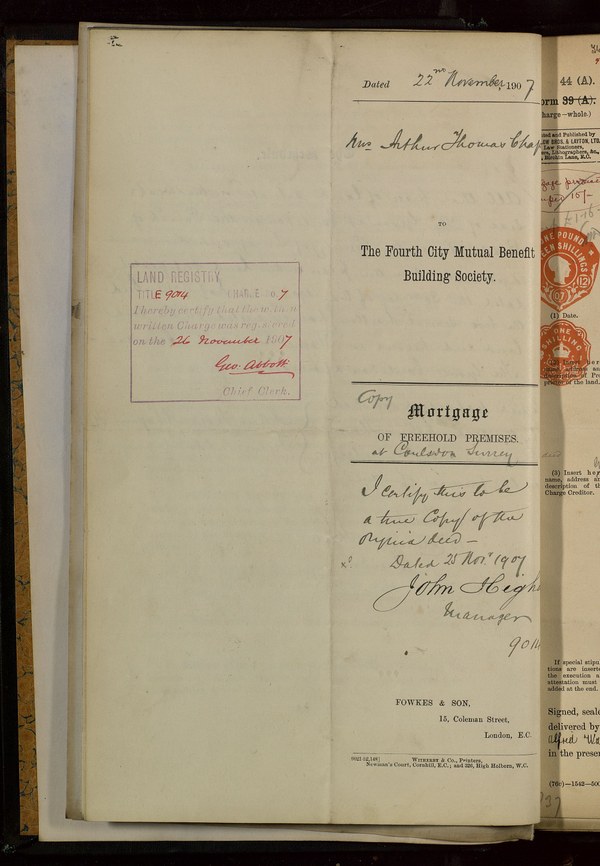 Dated 22nd November, 1907
Arthur Thomas Chap
TO
The Fourth City Mutual Benefit
Building Society.
LAND REGISTRY
TITLE 9014 CHARGE No. 7
I hereby certify that the within
written Charge was registered
on the 26 November 1907
Geo. Abbott
Chief Clerk.
Copy
Mortgage
OF FREEHOLD PREMISES.
at Coulsdon Surrey
I certify this to be
a true Copy of the
deed —
Dated 25 Nov. 1907
John High
Manager
FOWKES & SON,
15, Coleman Street,
London, E.C.
WITHERBY & Co., Printers,
Newman's Court, Cornhill, E.C.; and 326, High Holborn, W.C.
44 (A).
orm 39 (A).
harge—whole.)
ted and Published by
& LAYTON, LTD.
Law Stationers,
Lithographers, &c.,
Birchin Lane, E.C.
ONE POUND
TEN SHILLINGS
(1) Date.
ONE
SHILLING
of the land.
(3) Insert her
name, address an
description of th
Charge Creditor.
If special stipu
tions are inserte
the execution a
attestation must
added at the end.
Signed, seale
delivered by
Alfred Wa
in the presen